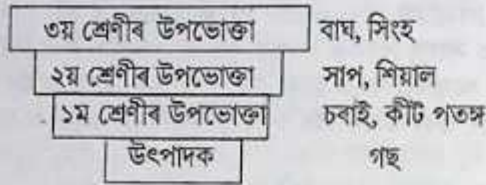 ৩য় শ্ৰেণীৰ উপভোক্তা বাঘ, সিংহ
২য় শ্ৰেণীৰ উপভোক্তা সাপ, শিয়াল
১ম শ্ৰেণীৰ উপভোক্তা চৰাই, কীট পতঙ্গ
উৎপাদক গছ